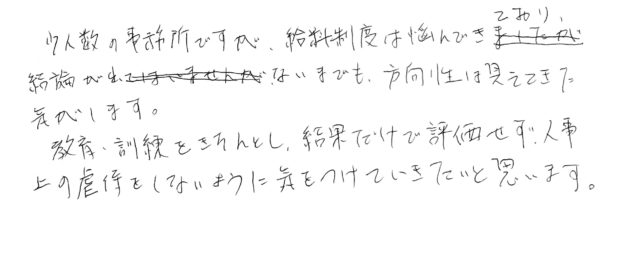 ており、
少人数の事務所ですが、給料制度は悩んできましたが
結論が出てはいませんが、ないまでも、方向性は見えてきた
気がします。
教育・訓練をきちんとし、結果だけで評価せず、人事
上の虐待をしないように気をつけていきたいと思います。